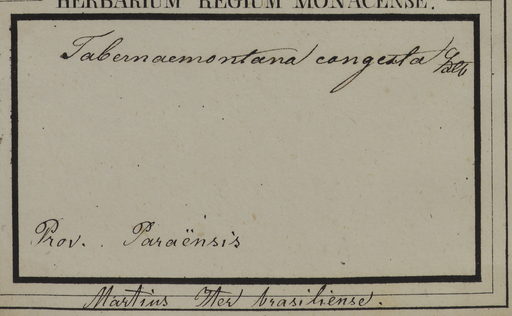 HERBARIUM REGIUM MONACENSE.
Tabernaemontana congesta
Prov. Paraënsis
Martius Iter brasiliense.